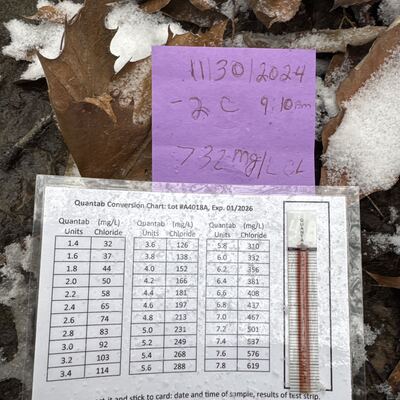 11/30/2024
-2 C 9:10am
732 mg/L CL
Quantab Conversion Chart: Lot #A4018A, Exp. 01/2026
Quantab Units (mg/L) Chloride Quantab Units (mg/L) Chloride Quantab Units (mg/L) Chloride
1.4 32 3.6 126 5.8 310
1.6 37 3.8 138 6.0 332
1.8 44 4.0 152 6.2 356
2.0 50 4.2 166 6.4 381
2.2 58 4.4 181 6.6 408
2.4 65 4.6 197 6.8 437
2.6 74 4.8 213 7.0 467
2.8 83 5.0 231 7.2 501
3.0 92 5.2 249 7.4 537
3.2 103 5.4 268 7.6 576
3.4 114 5.6 288 7.8 619
QUANTAB
it and stick to card: date and time of sample, results of test strip,